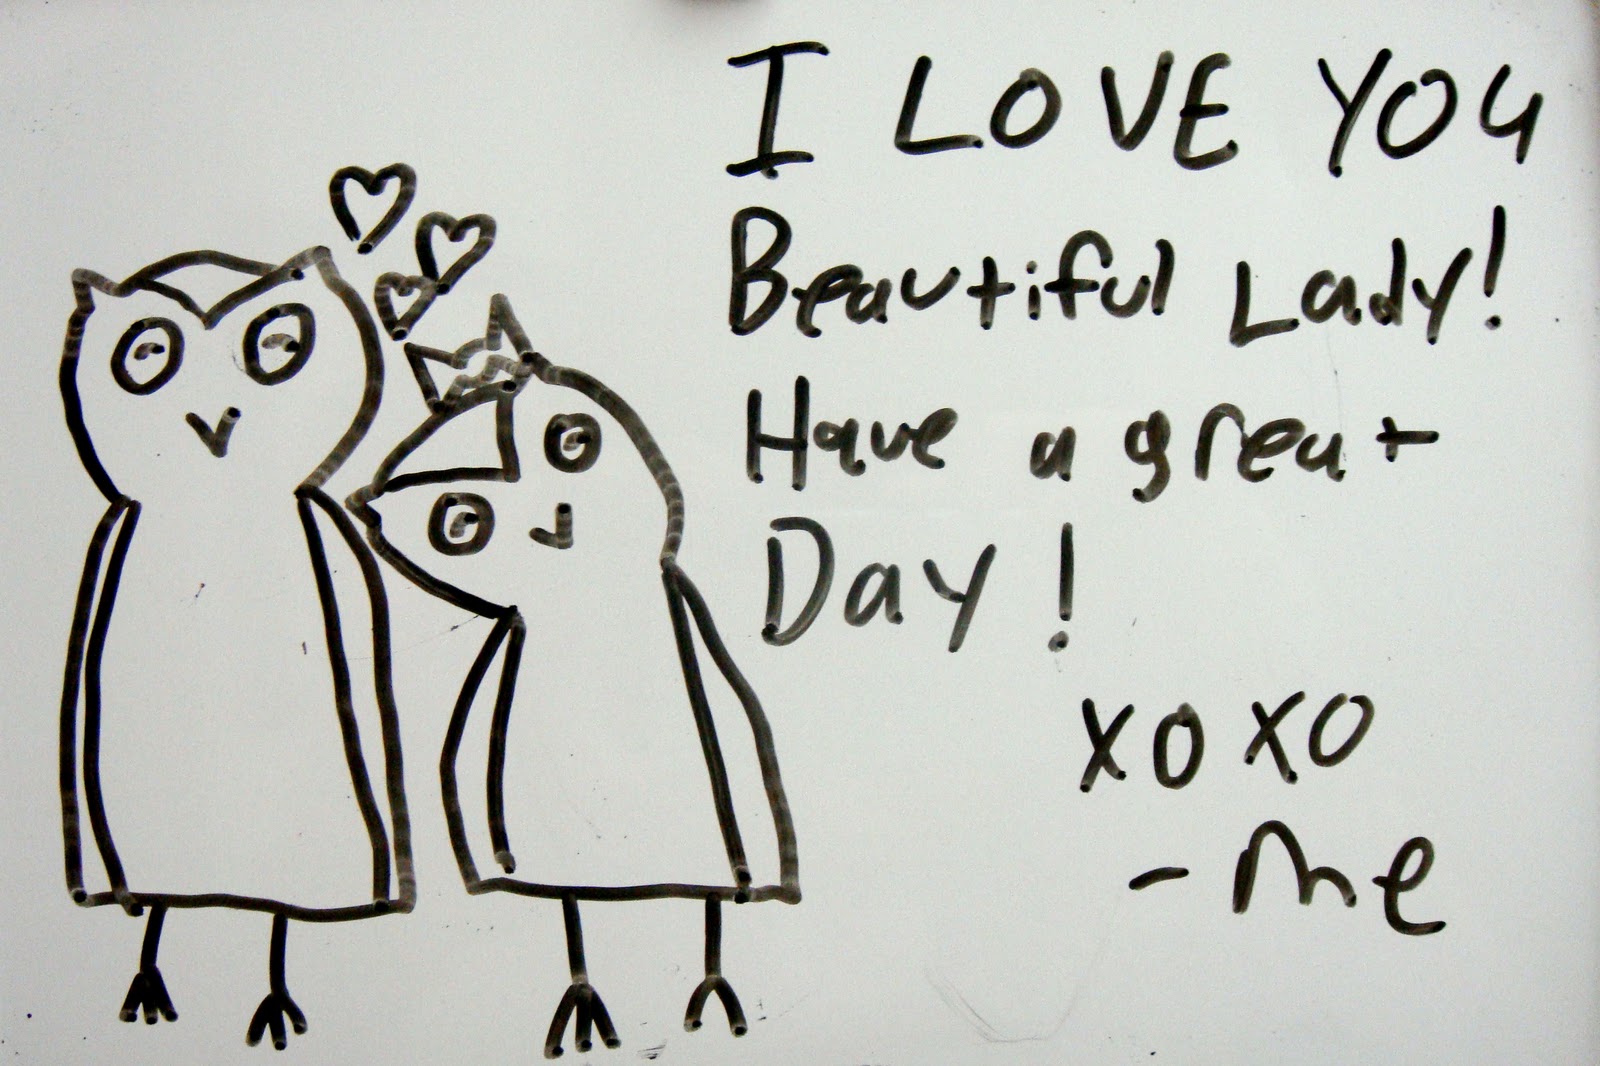 I LOVE YOU
Beautiful Lady!
Have a great
Day!
XOXO
- Me